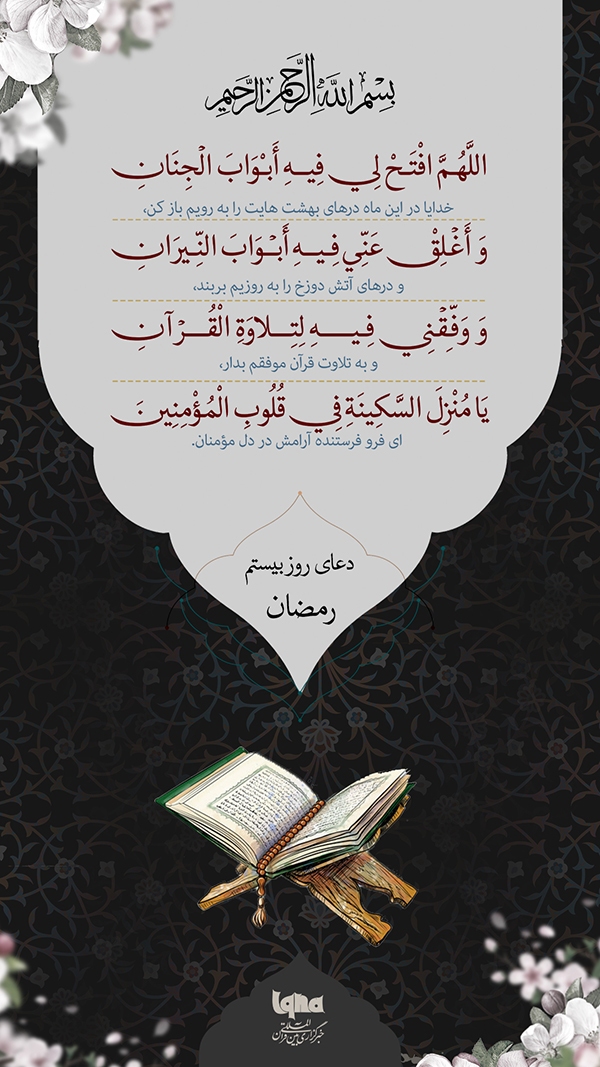 بِسْمِ اللَّهِ الرَّحْمَنِ الرَّحِيمِ
اللَّهُمَّ افْتَحْ لِي فِيهِ أَبْوَابَ الْجِنَانِ
خدایا در این ماه درهای بهشت هایت را به رویم باز کن،
وَ أَغْلِقْ عَنِّي فِيهِ أَبْوَابَ النِّيرَانِ
و درهای آتش دوزخ را به روزیم بربند،
وَ وَفِّقْنِي فِيهِ لِتِلاوَةِ الْقُرْآنِ
و به تلاوت قرآن موفقم بدار،
يَا مُنْزِلَ السَّكِينَةِ فِي قُلُوبِ الْمُؤْمِنِينَ
ای فرو فرستنده آرامش در دل مؤمنان.
دعای روز بیستم
رمضان
iqna
خبرگزاری بین المللی قرآن